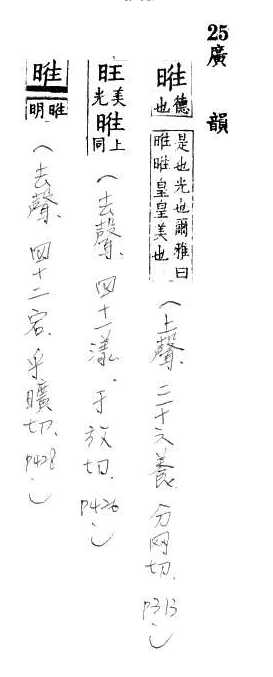 25 廣韻
暀 德也 是也光也爾雅曰暀暀皇皇美也 (上聲. 三十六養. 分网切. P313)
旺 美光 暀 上同 (去聲. 四十一漾. 于放切. P426)
暀 暀明 (去聲. 四十二宕. 乎曠切. P428)